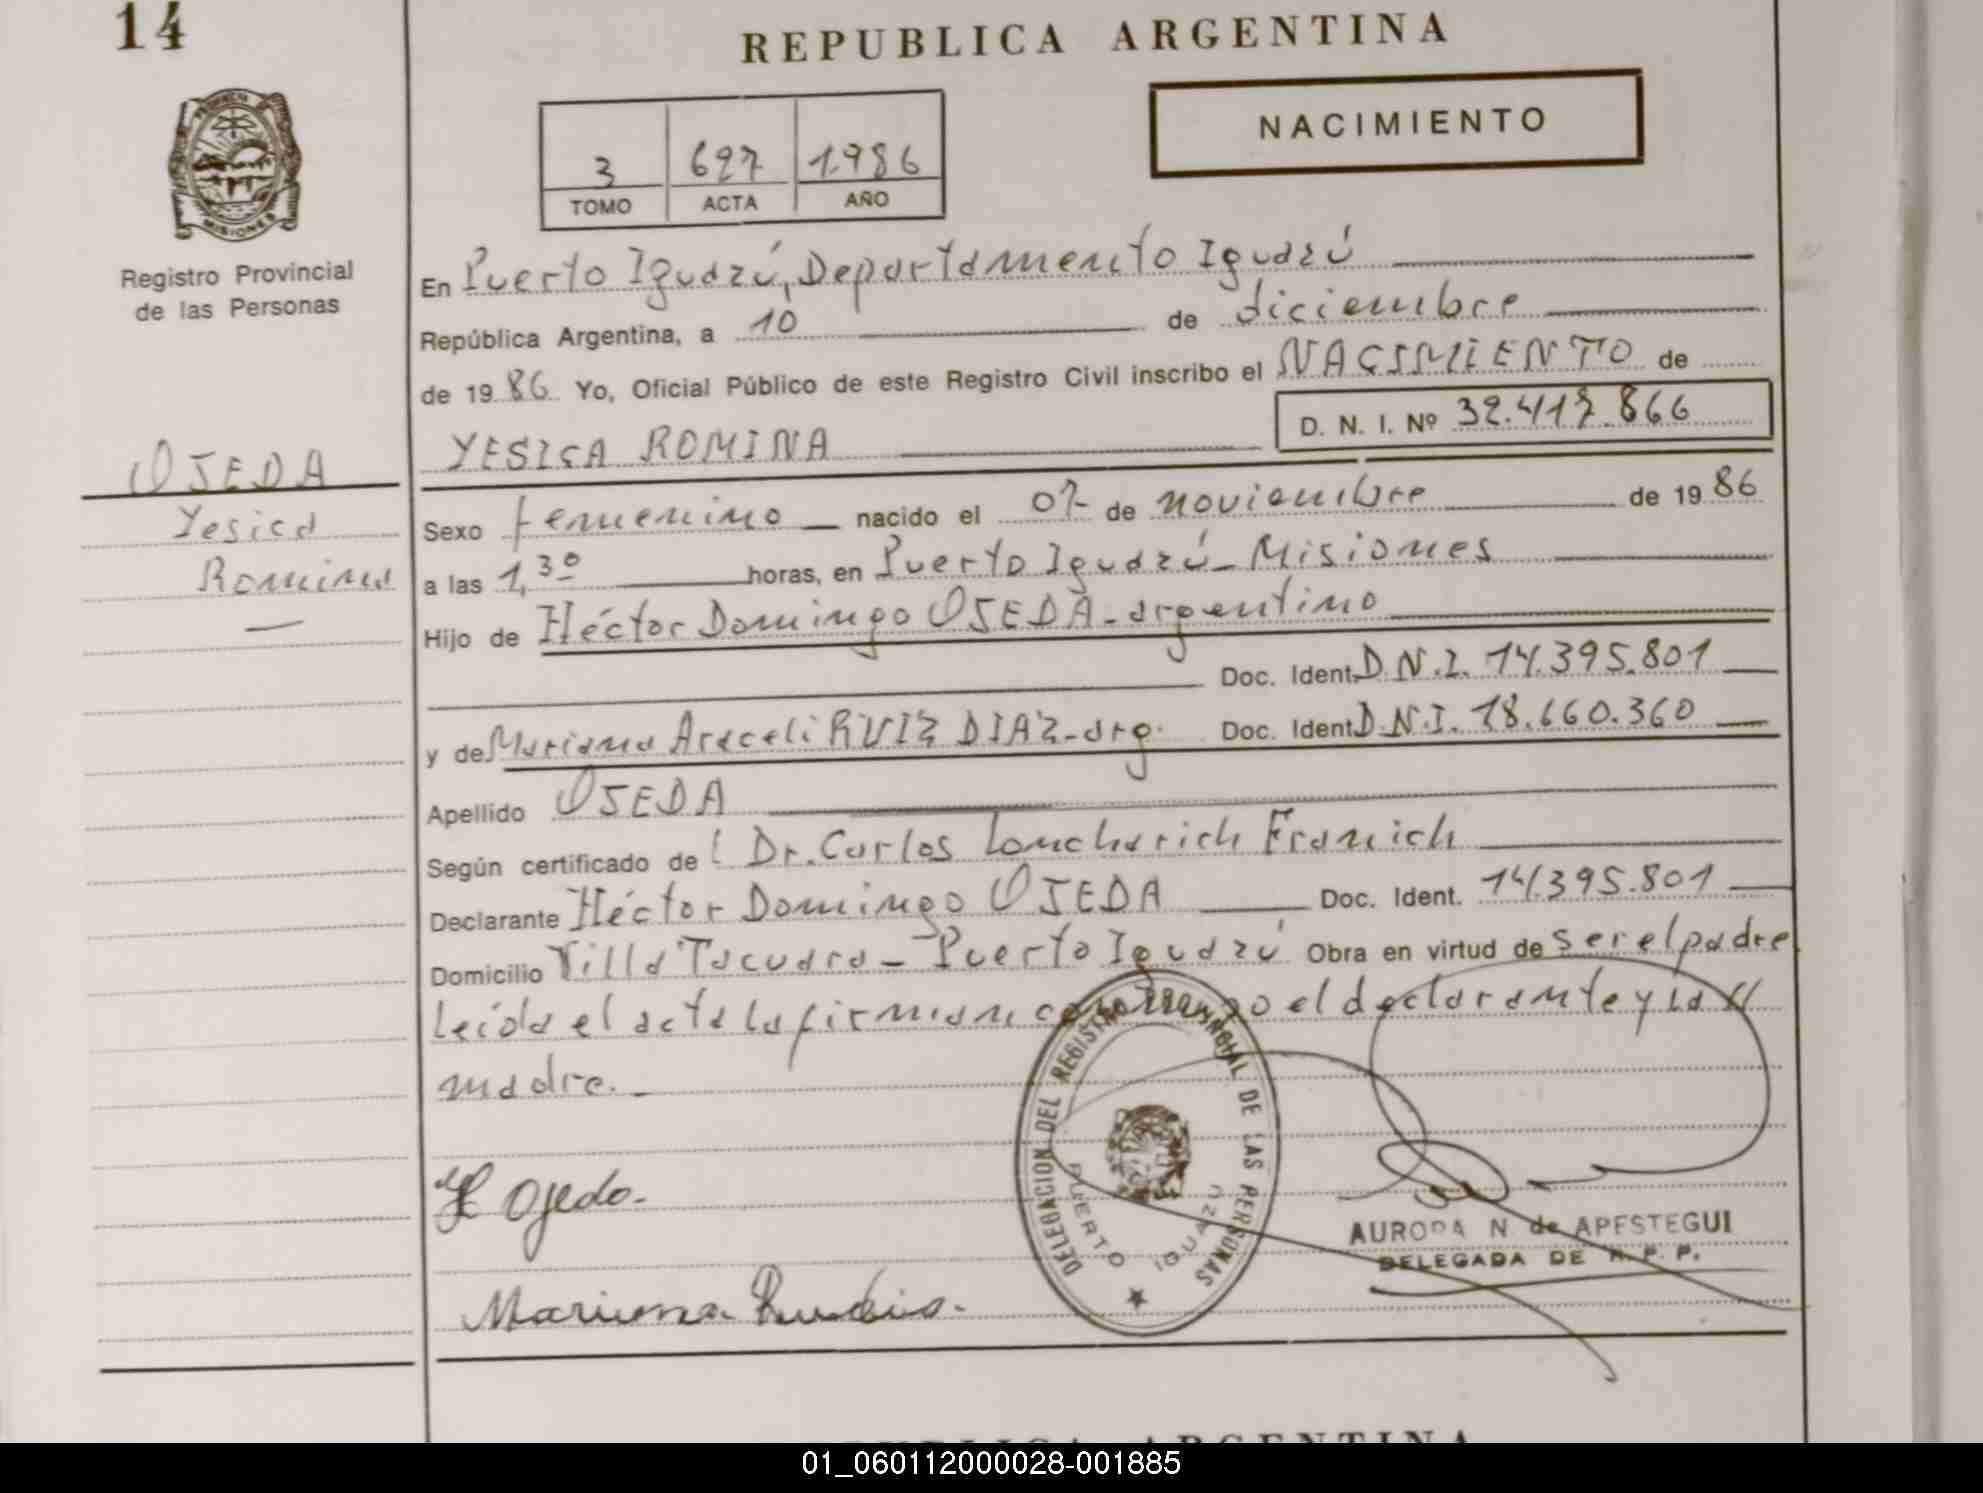 14
REPUBLICA ARGENTINA
NACIMIENTO
3 697 1.986
TOMO ACTA AÑO
MISIONES
Registro Provincial
de las Personas
En Puerto Iguazú, Departamento Iguazú
República Argentina, a 10 de diciembre
de 19 86 Yo, Oficial Público de este Registro Civil inscribo el NACIMIENTO de
D. N. I. Nº 32.417.866
YESICA ROMINA
OJEDA
Yesica
Romina
Sexo femenino nacido el 07 de noviembre de 19 86
a las 1,30 horas, en Puerto Iguazú - Misiones
Hijo de Héctor Domingo OJEDA - argentino
Doc. Ident. D.N.I. 14.395.801
y de Mariana Araceli RUIZ DIAZ - arg. Doc. Ident. D.N.I. 18.660.360
Apellido OJEDA
Según certificado de Dr. Carlos Franich
Declarante Héctor Domingo OJEDA Doc. Ident. 14.395.801
Domicilio Villa Tacuara - Puerto Iguazú Obra en virtud de ser el padre
Leída el acta la firman conmigo el declarante y la //
madre.
DELEGACION DEL REGISTRO PROVINCIAL DE LAS PERSONAS
PUERTO IGUAZU
H Ojeda.
Mariana
AURORA N. de APESTEGUI
DELEGADA DE R. P. P.
REPUBLICA ARGENTINA
01_060112000028-001885